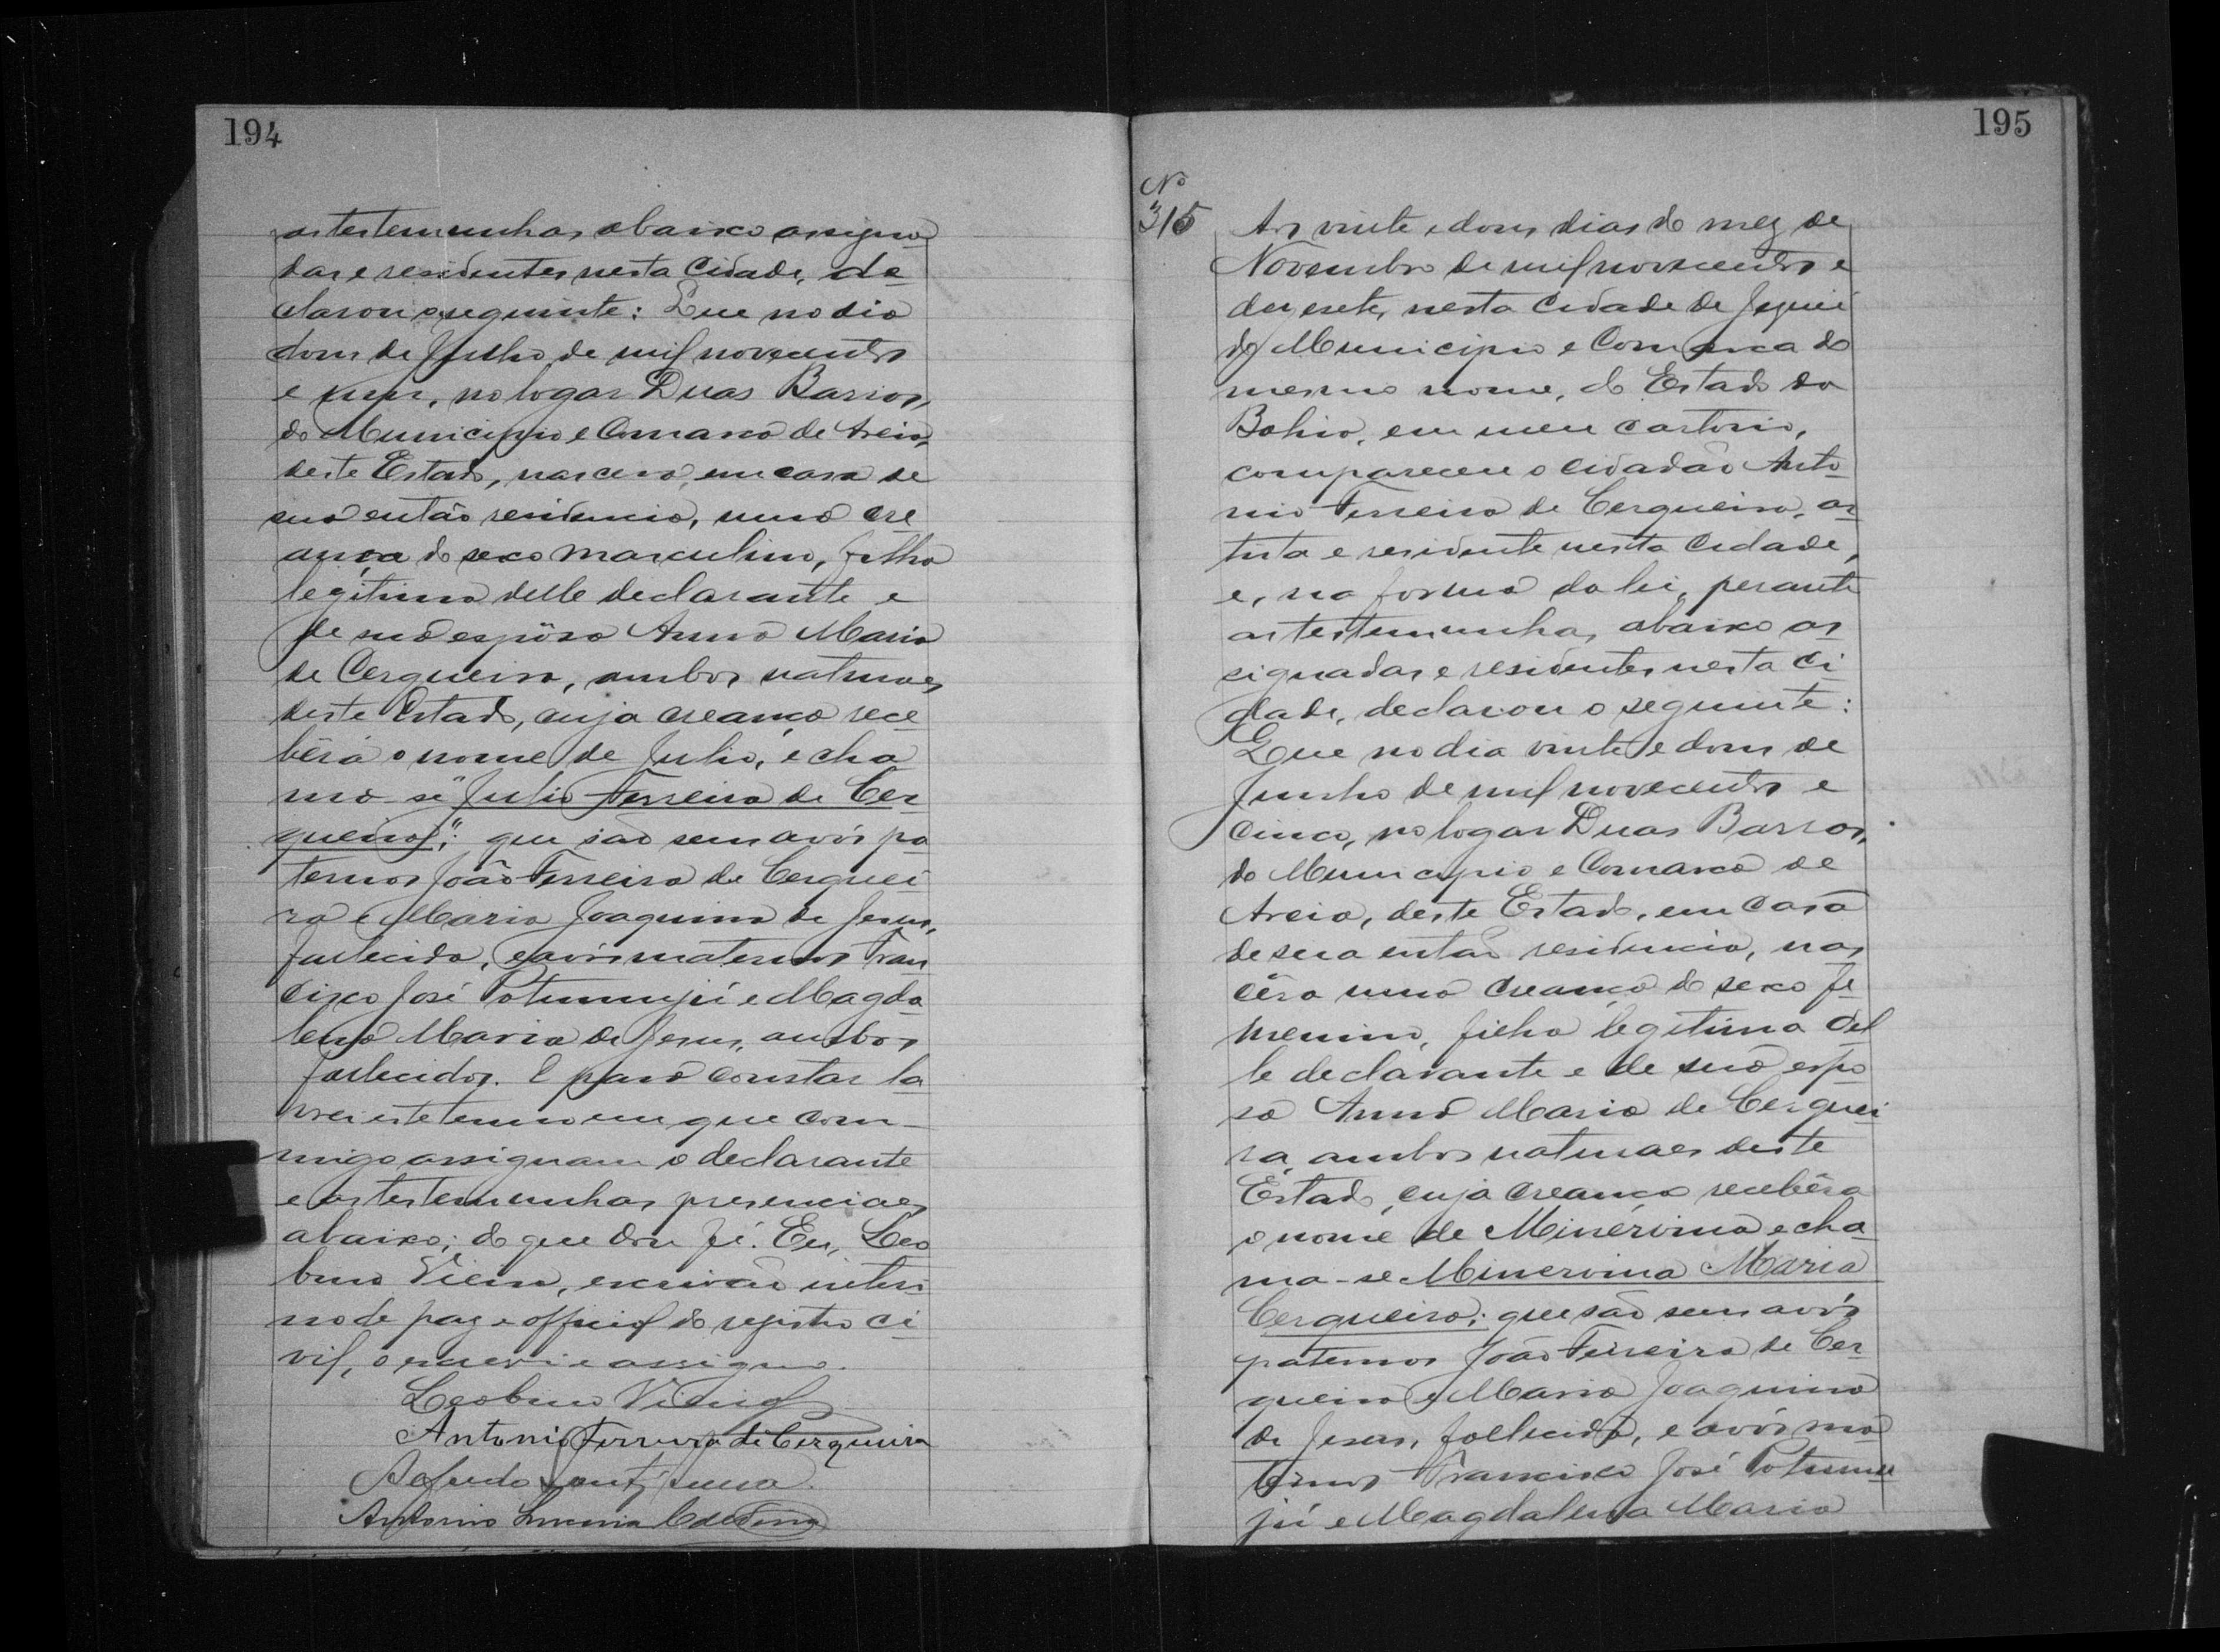 194
as testemunhas abaixo assigna
das e residentes nesta Cidade, de
clarou o seguinte: Que no dia
dous de Julho de mil novecentos
e um, no logar Duas Barras,
do Municipio e Comarca de Areia,
deste Estado, nascera, em casa de
sua então residencia, uma cre
ança do sexo masculino, filho
legitimo delle declarante e
de sua espôsa Anna Maria
de Cerqueira, ambos naturaes
deste Estado, cuja creança rece
bêra o nome de Julio, e cha
ma-se "Julio Ferreira de Cer
queira"; que são seus avós pa
ternos João Ferreira de Cerquei
ra e Maria Joaquina de Jesus,
fallecida, e avós maternos Fran
cisco José Potumujú e Magda
lena Maria de Jesus, ambos
fallecidos. E para constar la
vrei este termo em que com-
migo assignam o declarante
e as testemunhas presenciaes
abaixo; do que dou fé. Eu, Leo
bino Vieira, escrivão interi
no de paz e official do registro ci
vil, o escrevi e assigno.
Leobino Vieira
Antonio Ferreira de Cerqueira
Alfredo
Antonio
195
No
315
Aos vinte e dous dias do mez de
Novembro de mil novecentos e
dezesete, nesta Cidade de Jequié
do Municipio e Comarca do
mesmo nome, do Estado da
Bahia, em meu cartorio,
compareceu o cidadão Anto
nio Ferreira de Cerqueira, ar
tista e residente nesta Cidade,
e, na forma da lei, perante
as testemunhas abaixo as
signadas e residentes nesta Ci
dade, declarou o seguinte:
Que no dia vinte e dous de
Junho de mil novecentos e
cinco, no logar Duas Barras,
do Municipio e Comarca de
Areia, deste Estado, em casa
de sua então residencia, nas
cêra uma creança do sexo fe
menino, filha legitima del
le declarante e de sua espo
sa Anna Maria de Cerquei
ra, ambos naturaes deste
Estado, cuja creança recebêra
o nome de Minervina e cha
ma-se Minervina Maria
Cerqueira; que são seus avós
paternos João Ferreira de Cer
queira e Maria Joaquina
de Jesus, fallecida, e avós ma
ternos Francisco José Potumu
jú e Magdalena Maria